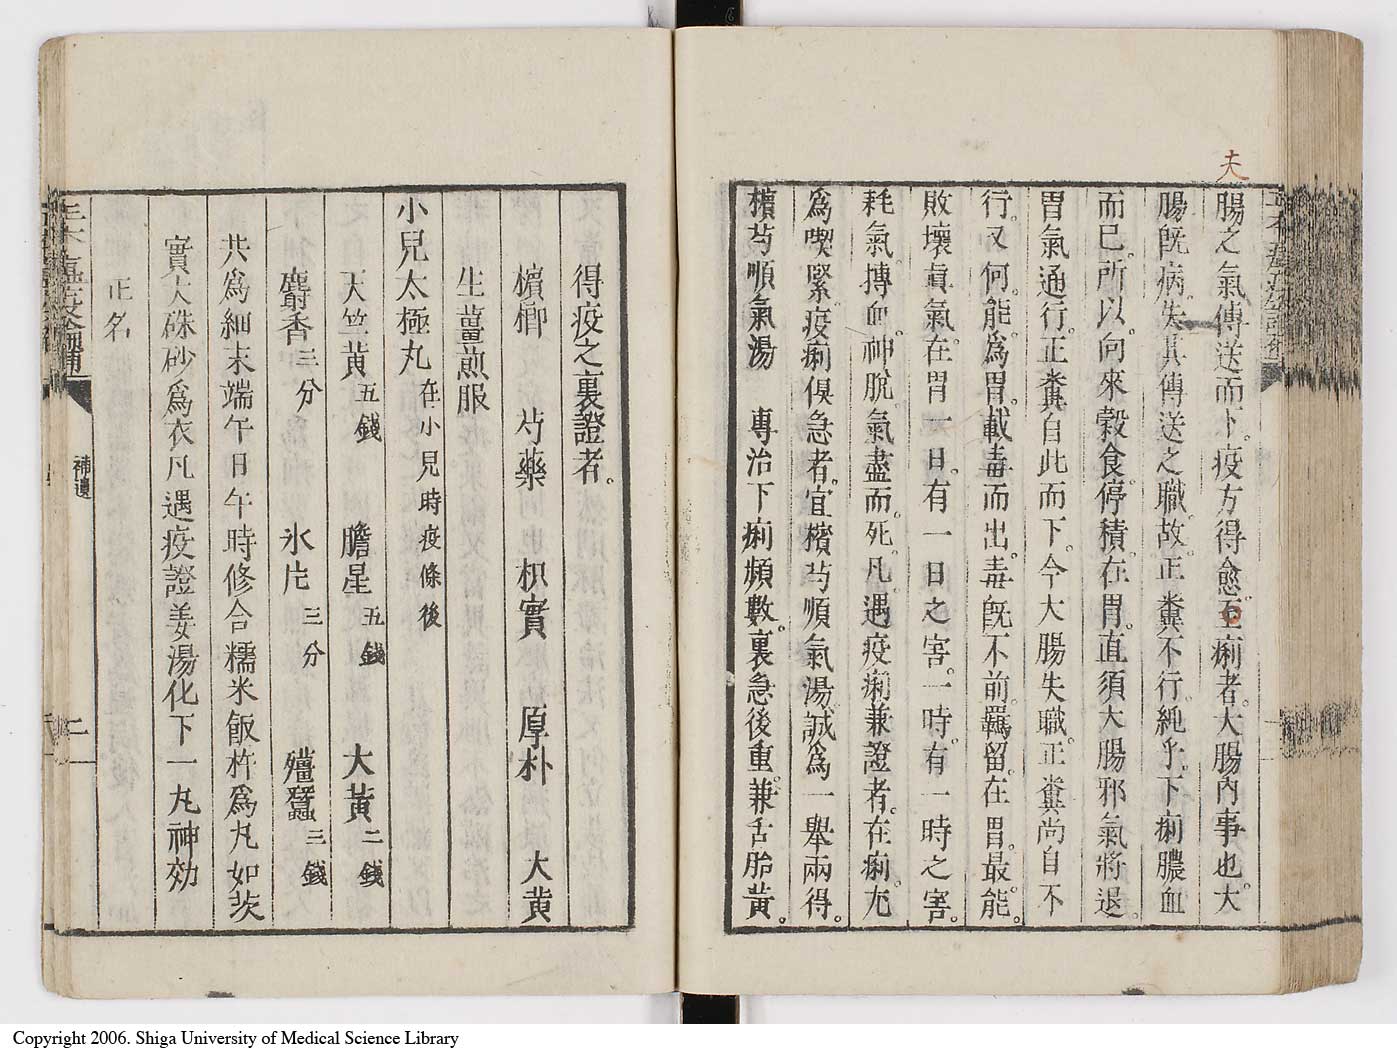 夫
腸之氣傳送而下。疫方得愈。至痢者。大腸內事也。大
腸既病。失其傳送之職。故正糞不行。純乎下痢膿血
而已。所以向來穀食停積在胃。直須大腸邪氣將退。
胃氣通行。正糞自此而下。今大腸失職。正糞尚自不
行。又何能爲胃。載毒而出。毒既不前。羈留在胃。最能
敗壞眞氣。在胃一日。有一日之害。一時有一時之害。
耗氣。摶血。神脫氣盡而死。凡遇疫痢兼證者。在痢尤
爲喫緊。疫痢俱急者。宜檳芍順氣湯。誠爲一舉兩得。
檳芍順氣湯　專治下痢頻數。裏急後重。兼舌胎黃。
得疫之裏證者。
檳榔　芍藥　枳實　厚朴　大黃
生薑煎服
小兒太極丸 在小兒時疫條後
天竺黃 五錢　膽星 五錢　大黃 二錢
麝香 三分　氷片 三分　殭蠶 三錢
共爲細末端午日午時修合糯米飯杵爲丸如芡
實大硃砂爲衣凡遇疫證姜湯化下一丸神効
正名
補遺
二
Copyright 2006. Shiga University of Medical Science Library